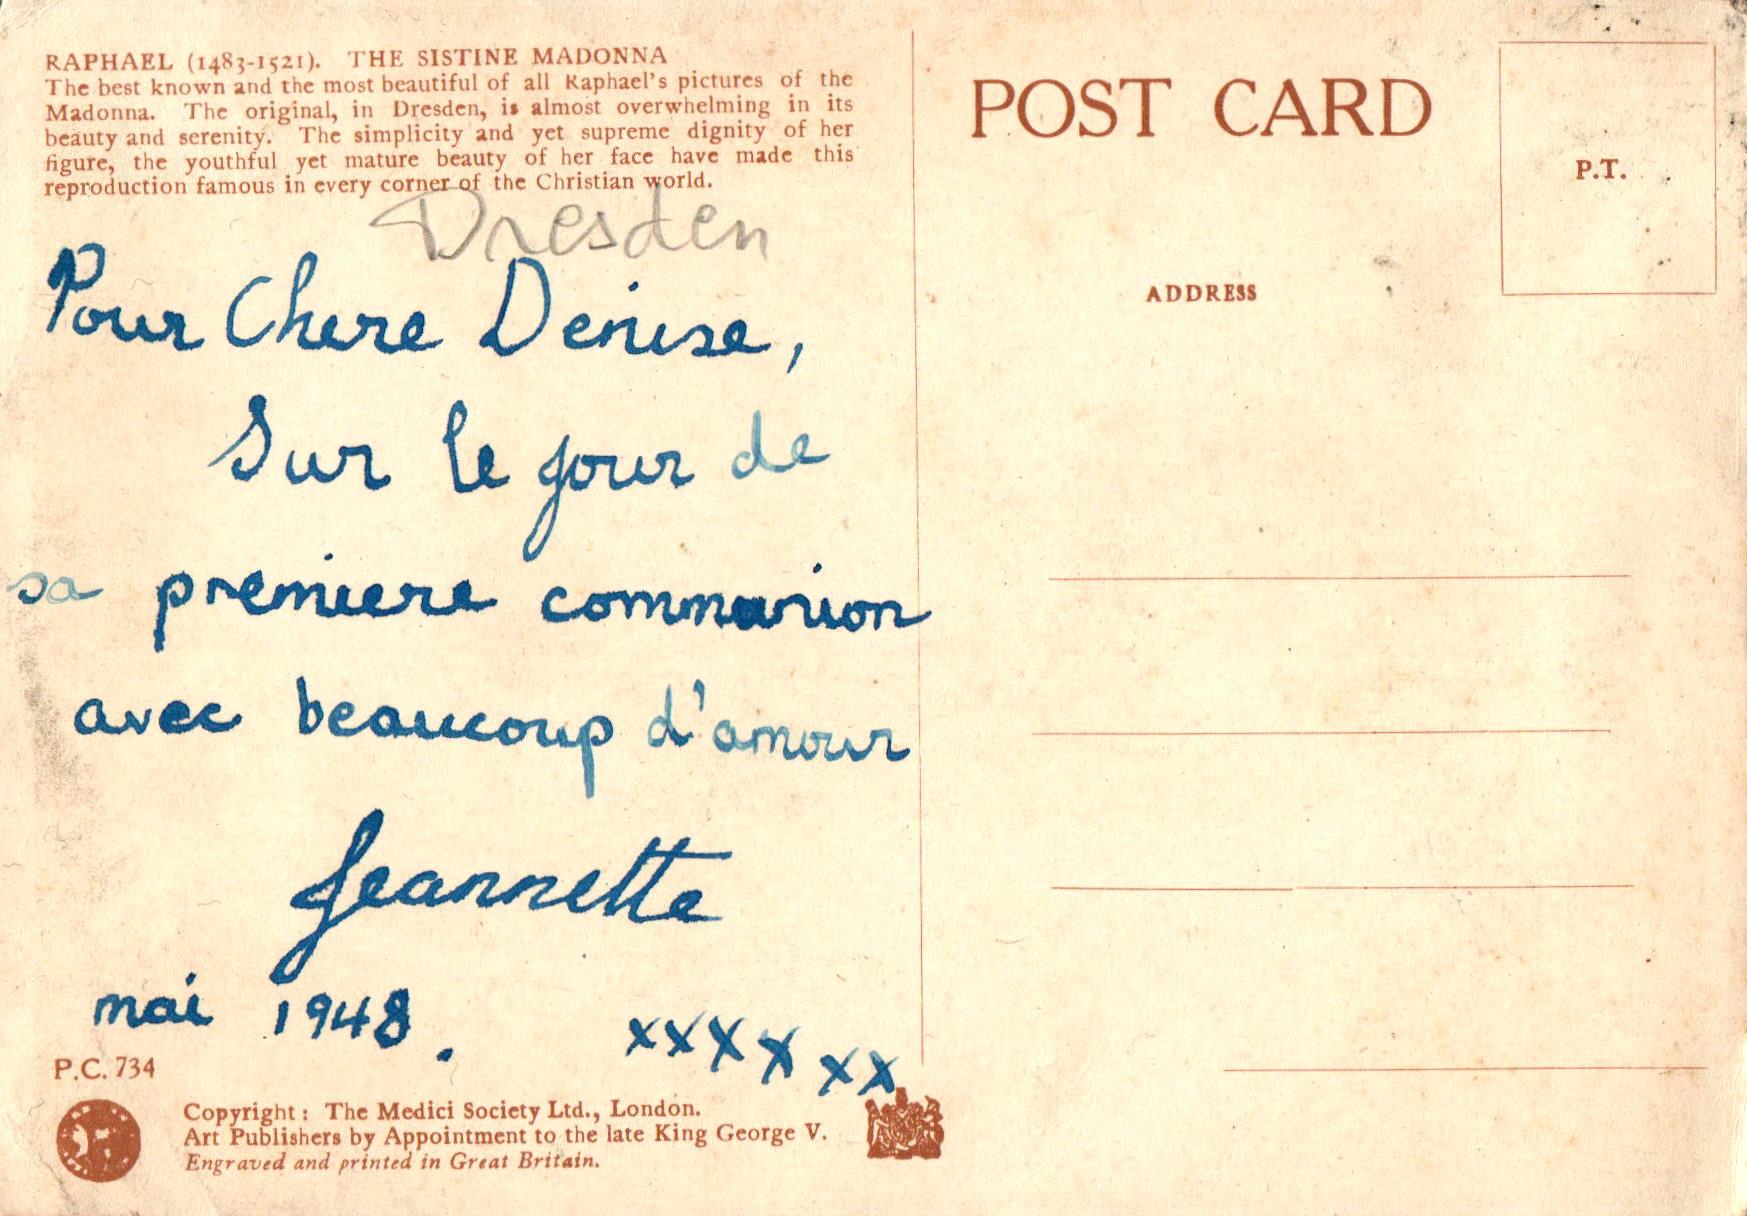 RAPHAEL (1483-1521). THE SISTINE MADONNA
The best known and the most beautiful of all Raphael's pictures of the
Madonna. The original, in Dresden, is almost overwhelming in its
beauty and serenity. The simplicity and yet supreme dignity of her
figure, the youthful yet mature beauty of her face have made this
reproduction famous in every corner of the Christian world.
Dresden
Pour Chere Denise,
Sur le jour de
sa premiere communion
avec beaucoup d'amour
Jeannette
mai 1948.
xxxxxx
P.C. 734
Copyright: The Medici Society Ltd., London.
Art Publishers by Appointment to the late King George V.
Engraved and printed in Great Britain.
POST CARD
P.T.
ADDRESS